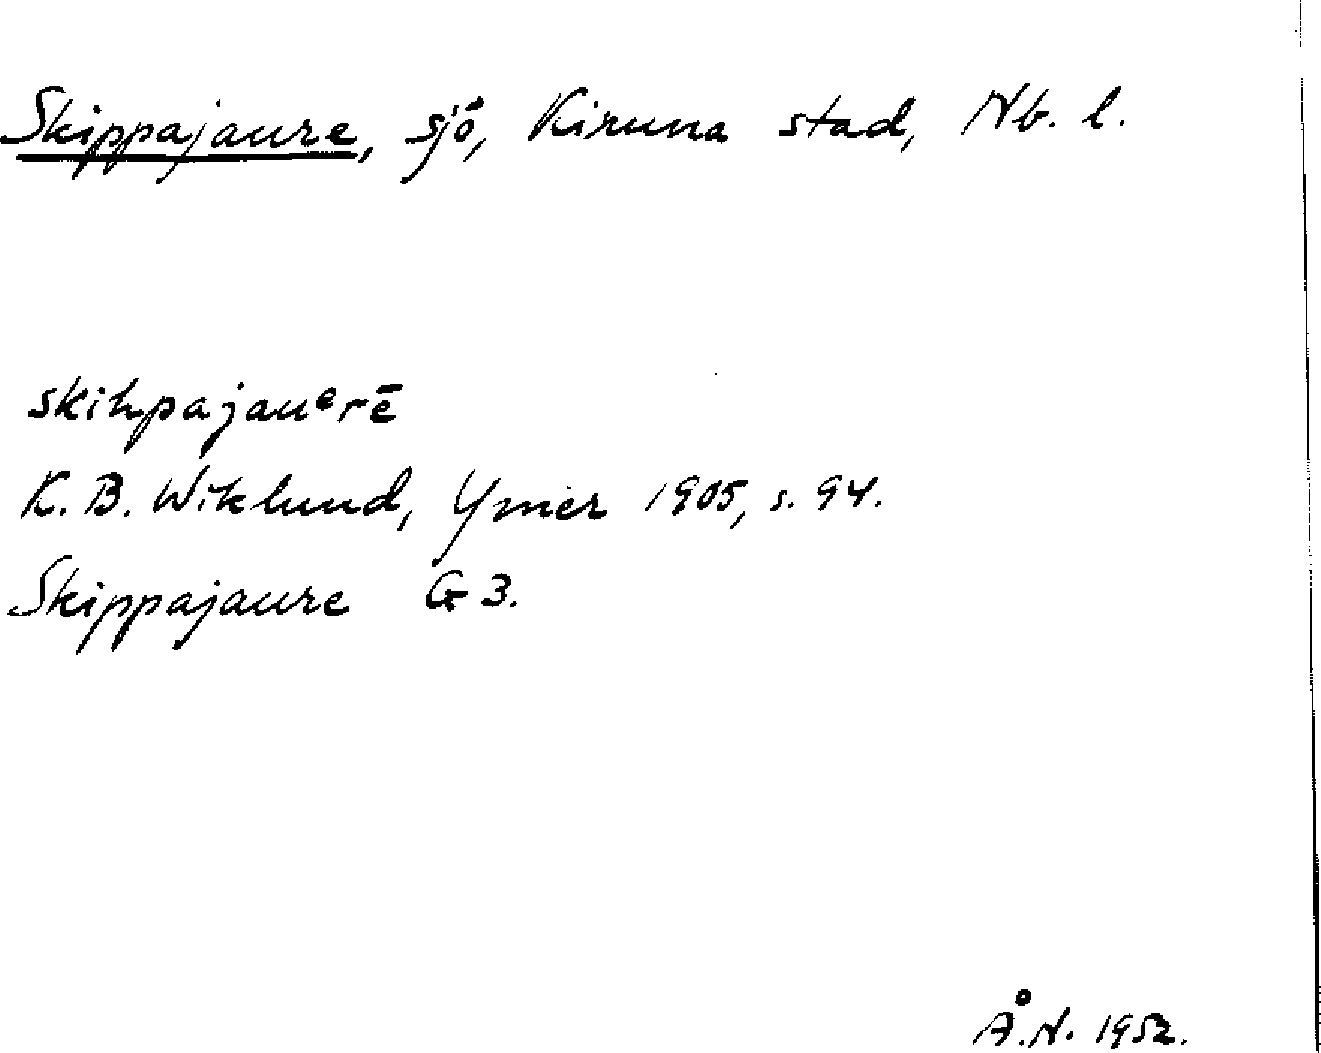 Skippajaure, sjö, Kiruna stad, Nb. l.
skihpajauᵉrē
K. B. Wiklund, Ymer 1905, s. 94.
Skippajaure G 3.
Å. N. 1952.